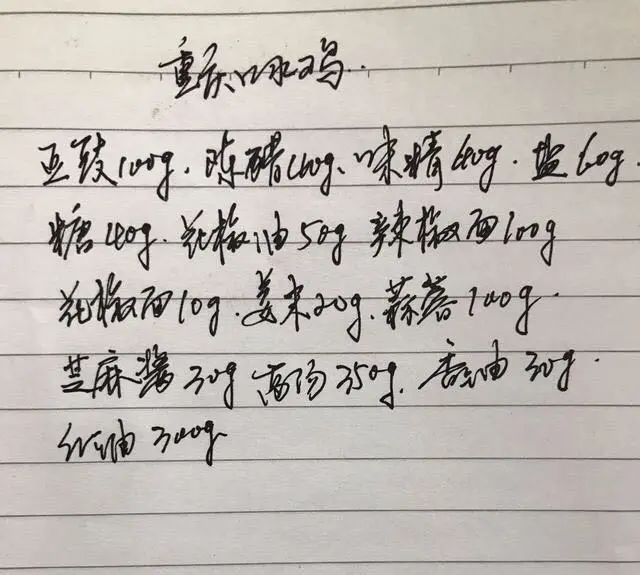 重庆口水鸡..
豆豉100g. 陈醋40g、味精40g. 盐60g.
糖40g. 花椒油50g 辣椒面100g
花椒面10g. 姜末20g. 蒜蓉100g.
芝麻酱30g 高汤350g. 香油30g.
红油300g